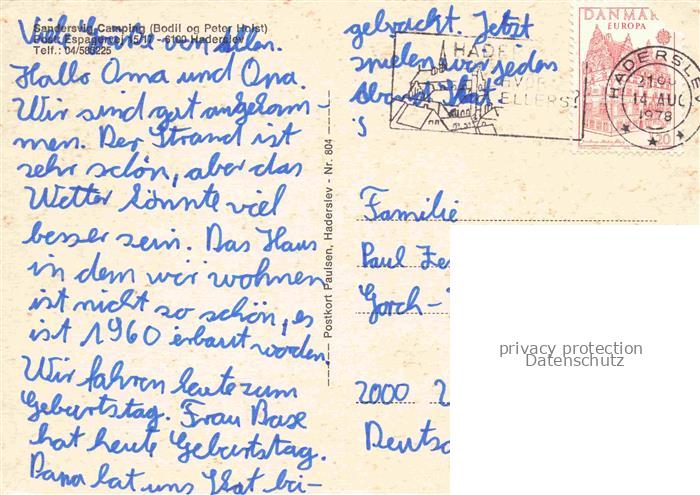 Viele Grüße von allen.
Sandersvig Camping (Bodil og Peter Holst)
Postk. Espagervej 15/17 - 6100 Haderslev
Telf.: 04/565225
Hallo Oma und Opa.
Wir sind gut angekom-
men. Der Strand ist
sehr schön, aber das
Wetter könnte viel
besser sein. Das Haus
in dem wir wohnen
ist nicht so schön, es
ist 1960 erbaut worden.
Wir fahren heute zum
Geburtstag. Frau Base
hat heute Geburtstag.
Papa hat uns Skat bei-
gebracht. Jetzt
spielen wir jeden
Abend Skat.
Postkort Paulsen, Haderslev - Nr. 804
DANMARK
EUROPA
120
HADERSLEV
14 AUG
1978
HADER
ELLERS?
Familie
Paul
Gorch-
2000 2
Deutsc
privacy protection
Datenschutz